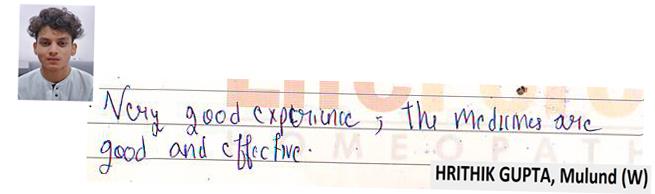 Very good experience, the medicines are
good and effective.
HOMEOPATH
HRITHIK GUPTA, Mulund (W)